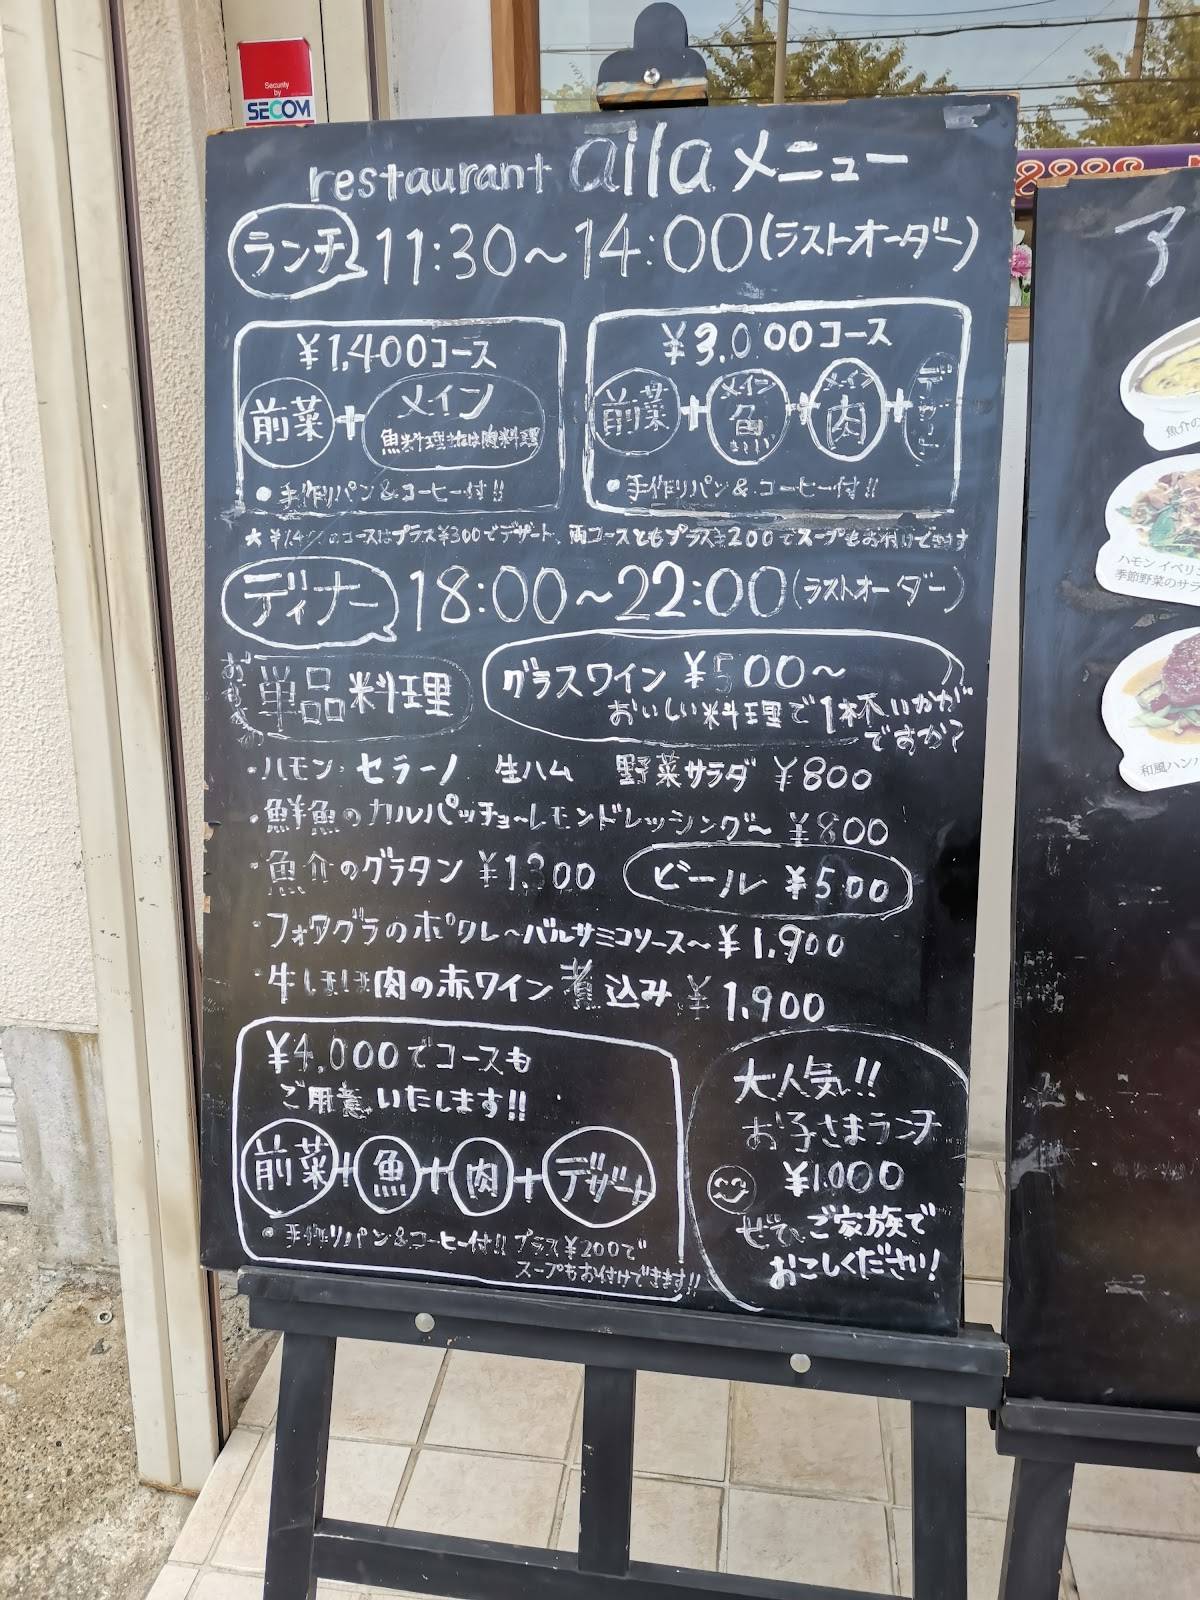 Security
by
SECOM
restaurant aila メニュー
ランチ 11:30～14:00(ラストオーダー)
¥1,400コース
前菜+メイン
魚料理または肉料理
●手作りパン&コーヒー付!!
¥3,000コース
前菜+メイン魚+メイン肉+デザート
●手作りパン&コーヒー付!!
★¥1,400のコースはプラス¥300でデザート、両コースともプラス¥200でスープもお付けできます
ディナー 18:00～22:00(ラストオーダー)
単品料理
グラスワイン ¥500～
おいしい料理で1杯いかが
ですか?
・ハモン・セラーノ 生ハム 野菜サラダ ¥800
・鮮魚のカルパッチョ～レモンドレッシング～ ¥800
・魚介のグラタン ¥1,300
ビール ¥500
・フォワグラのポワレ～バルサミコソース～¥1,900
・牛ほほ肉の赤ワイン煮込み ¥1,900
¥4,000でコースも
ご用意いたします!!
前菜+魚+肉+デザート
●手作りパン&コーヒー付!! プラス¥200で
スープもお付けできます!!
大人気!!
お子さまランチ
¥1,000
ぜひご家族で
おこしください!
ア
魚介の
ハモン イベリ
季節野菜のサラ
和風ハンバ